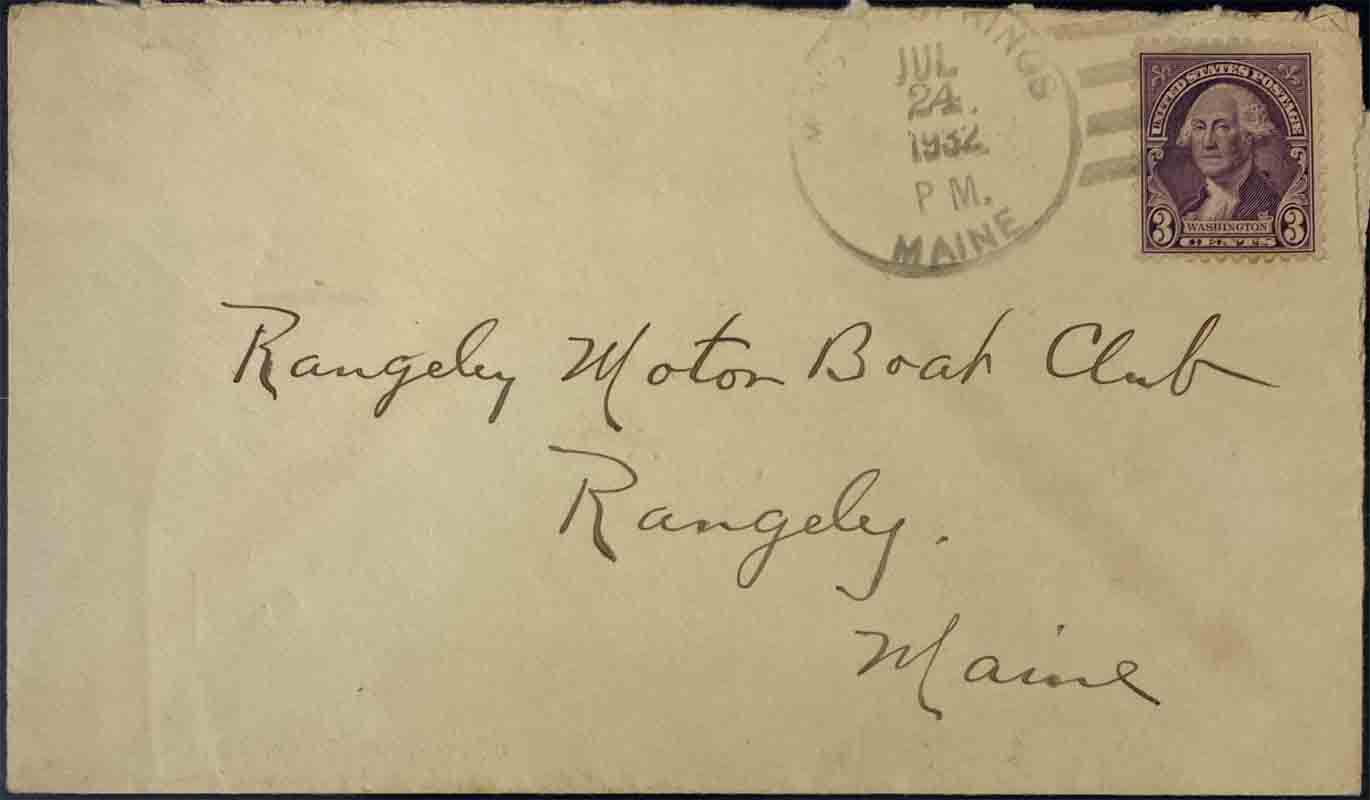 SPRINGS
JUL
24
1932
P M.
MAINE
UNITED STATES POSTAGE
3 WASHINGTON 3
Rangeley Motor Boat Club
Rangeley.
Maine